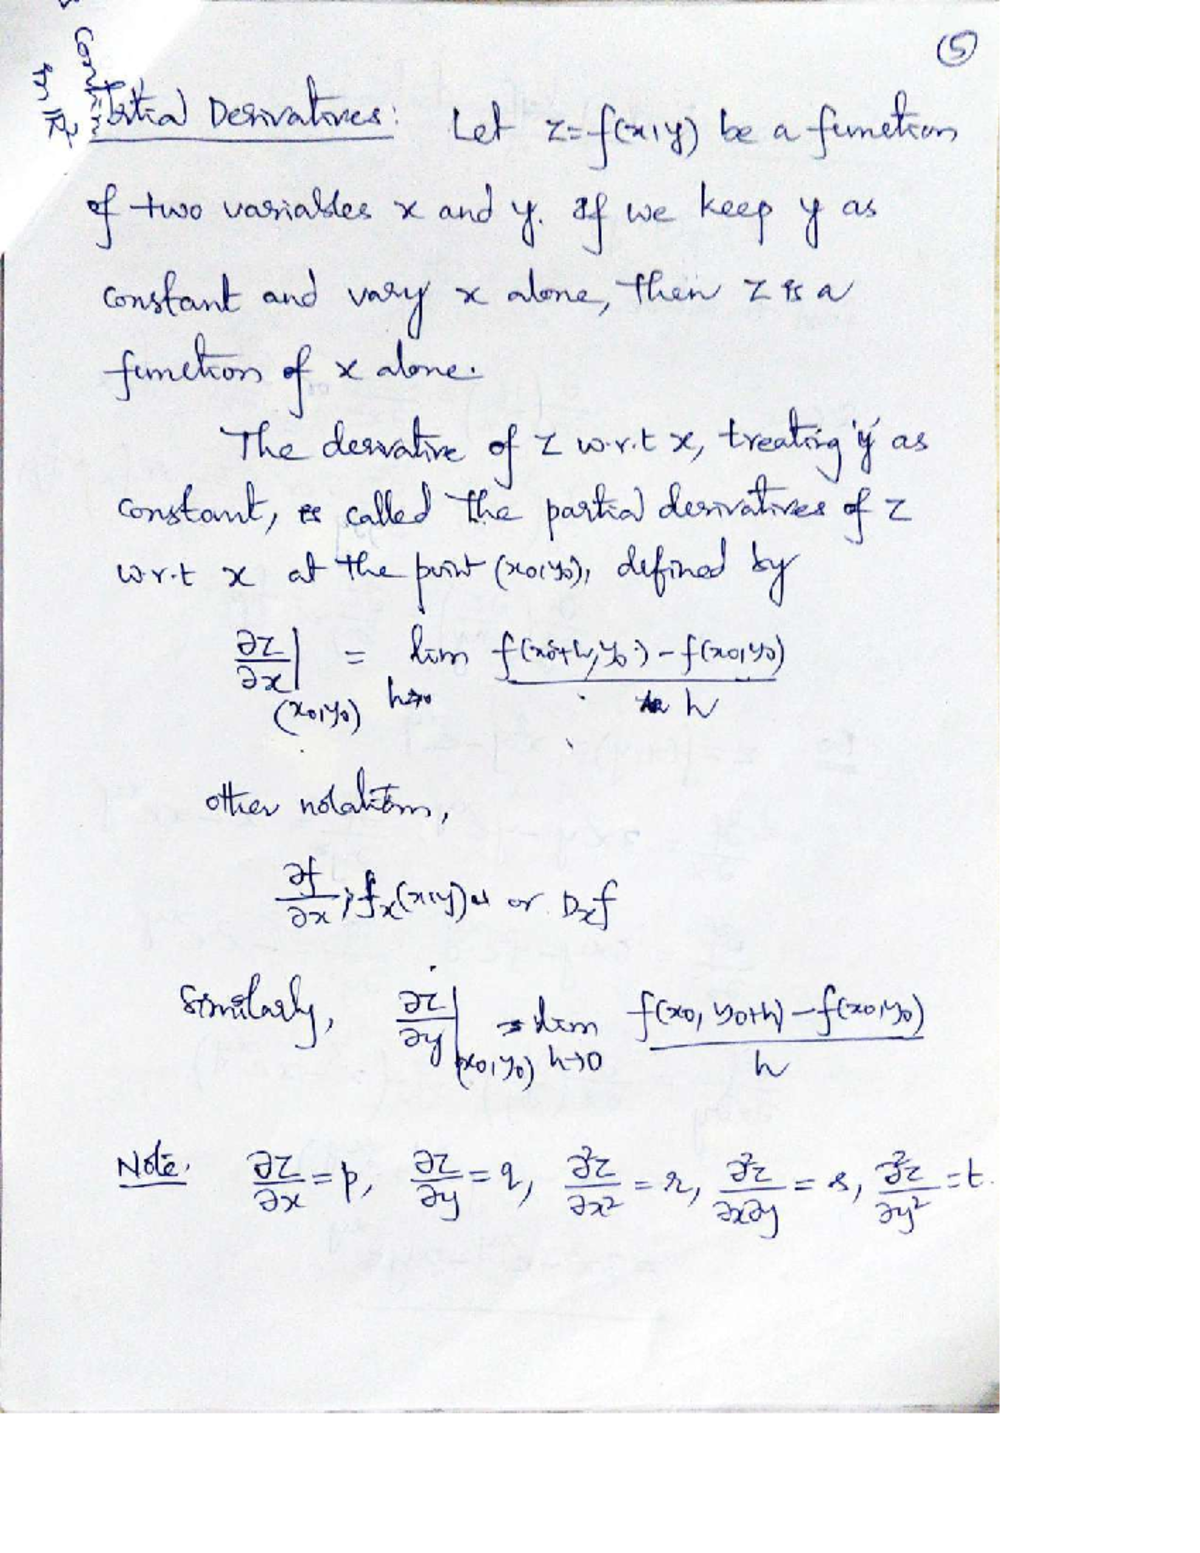 ⑤
Partial Derivatives: Let z=f(x,y) be a function
of two variables x and y. If we keep y as
constant and vary x alone, then z is a
function of x alone.
The derivative of z w.r.t x, treating 'y' as
constant, is called the partial derivatives of z
w.r.t x at the point (x₀,y₀), defined by
∂z/∂x|(x₀,y₀) = lim h→0 f(x₀+h,y₀)-f(x₀,y₀)/h
other notations,
∂f/∂x, fₓ(x,y) or Dₓf
Similarly, ∂z/∂y|(x₀,y₀) = lim h→0 f(x₀, y₀+h)-f(x₀,y₀)/h
Note. ∂z/∂x = p, ∂z/∂y = q, ∂²z/∂x² = r, ∂²z/∂x∂y = s, ∂²z/∂y² = t.